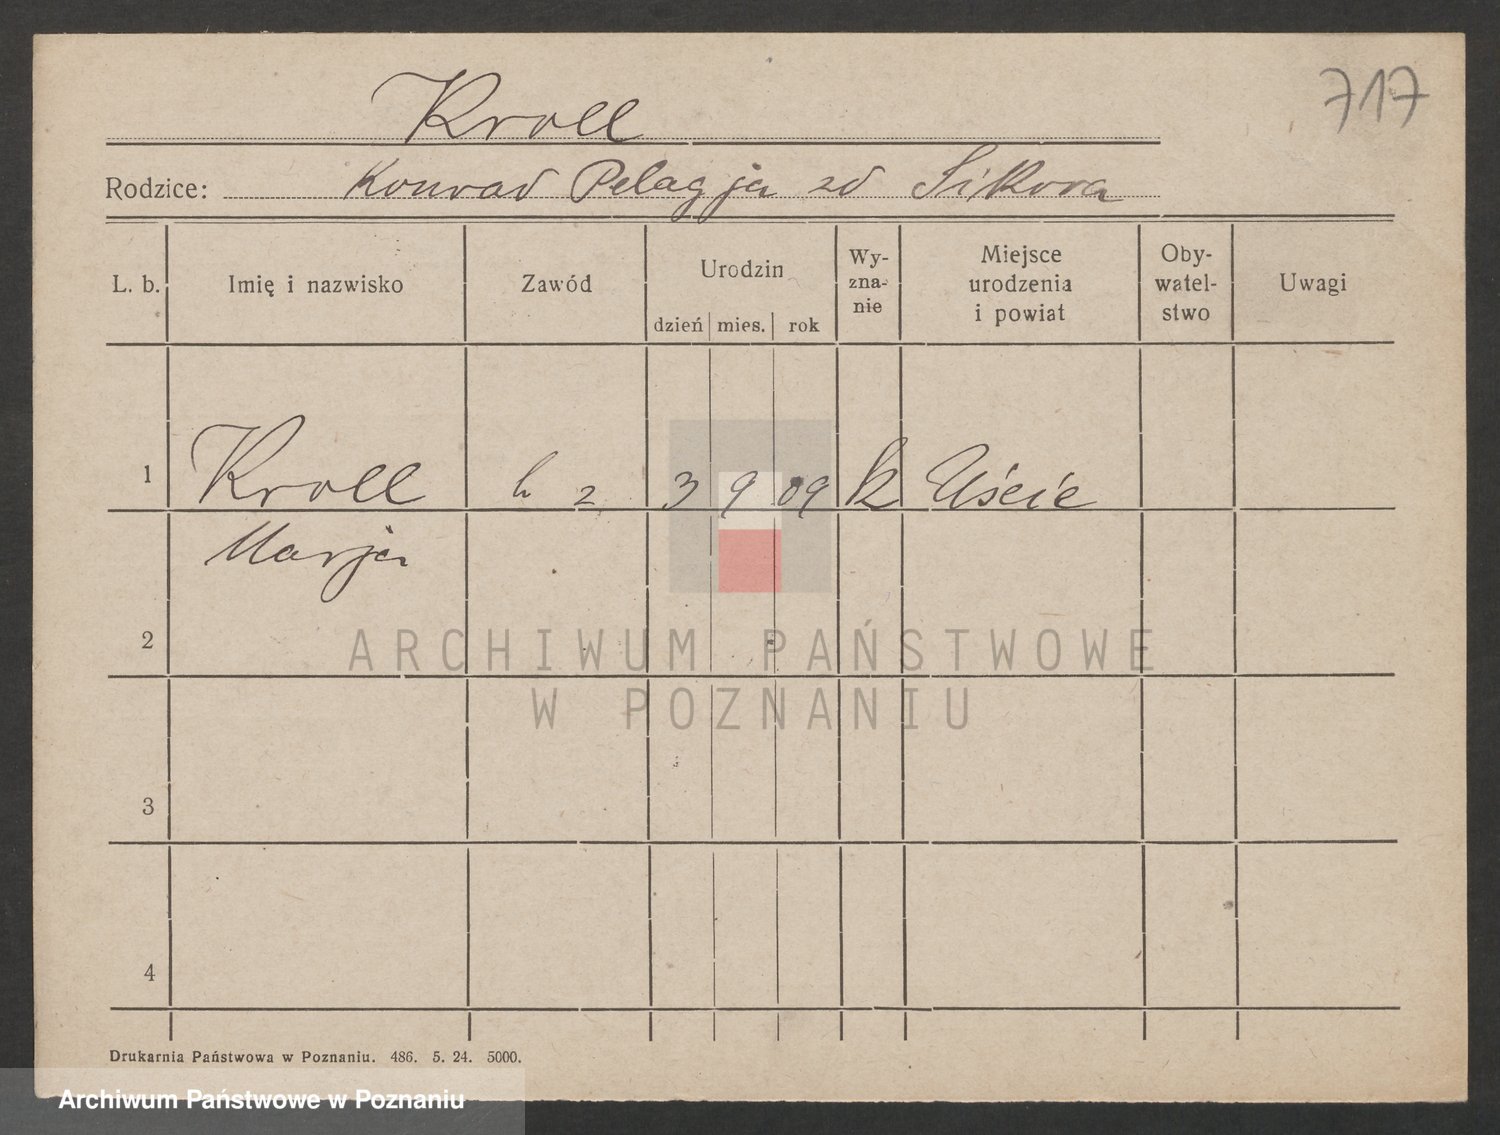 717
Kroll
Rodzice: Konrad Pelagja zd Sikora
L. b. Imię i nazwisko Zawód Urodzin dzień mies. rok Wy-zna-nie Miejsce urodzenia i powiat Oby-watel-stwo Uwagi
1 Kroll 3 9 09 k Uście
Marja
2
ARCHIWUM PAŃSTWOWE
W POZNANIU
3
4
Drukarnia Państwowa w Poznaniu. 486. 5. 24. 5000.
Archiwum Państwowe w Poznaniu